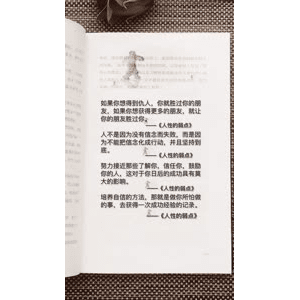 如果你想得到仇人，你就胜过你的朋
友，如果你想获得更多的朋友，就让
你的朋友胜过你。
——《人性的弱点》
人不是因为没有信念而失败，而是因
为不能把信念化成行动，并且坚持到
底。
——《人性的弱点》
努力接近那些了解你，信任你，鼓励
你的人，这对于你日后的成功具有莫
大的影响。
——《人性的弱点》
培养自信的方法，那就是做你所怕做
的事，去获得一次成功经验的记录。
——《人性的弱点》